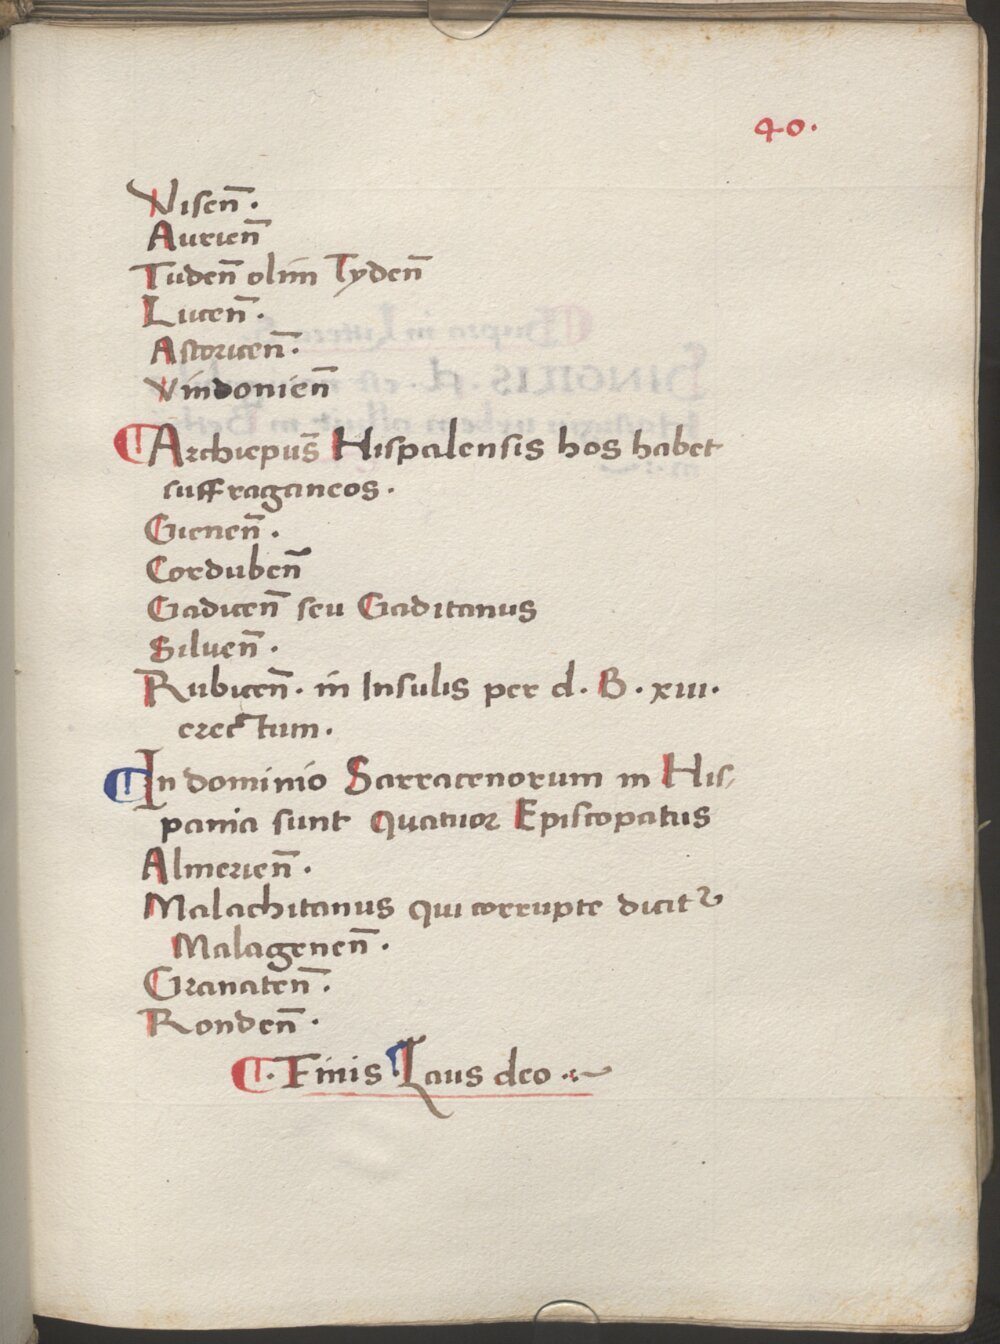 40.
Visen̄.
Aurien̄
Tuden̄ olim Tyden̄
Lucen̄.
Astoricen̄.
Vindonien̄
¶Archiepus̄ Hispalensis hos habet
suffraganeos.
Gienen̄.
Corduben̄
Gadicen̄ seu Gaditanus
Siluen̄.
Rubicen̄. in Insulis per d. B. xiii.
erectum.
¶In dominio Sarracenorum in His/
pania sunt quatuor Episcopatus
Almerien̄.
Malachitanus qui corrupte dicit᷑
Malagenen̄.
Granaten̄.
Ronden̄.
¶. Finis ¶Laus deo .~